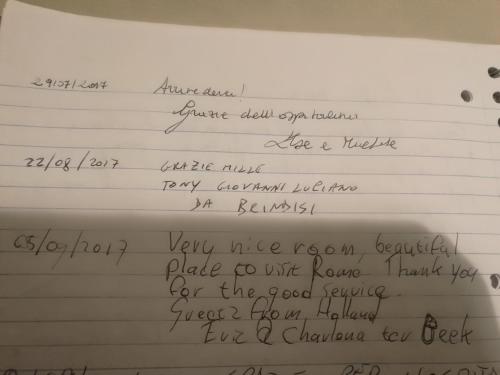 29/07/2017 Arrivederci!
Grazie dell'ospitalità
e
22/08/2017 GRAZIE MILLE
TONY GIOVANNI LUCIANO
DA BRINDISI
05/09/2017 Very nice room, beautiful
place to visit Rome. Thank you
for the good service.
Guests from Holland
ter Beek